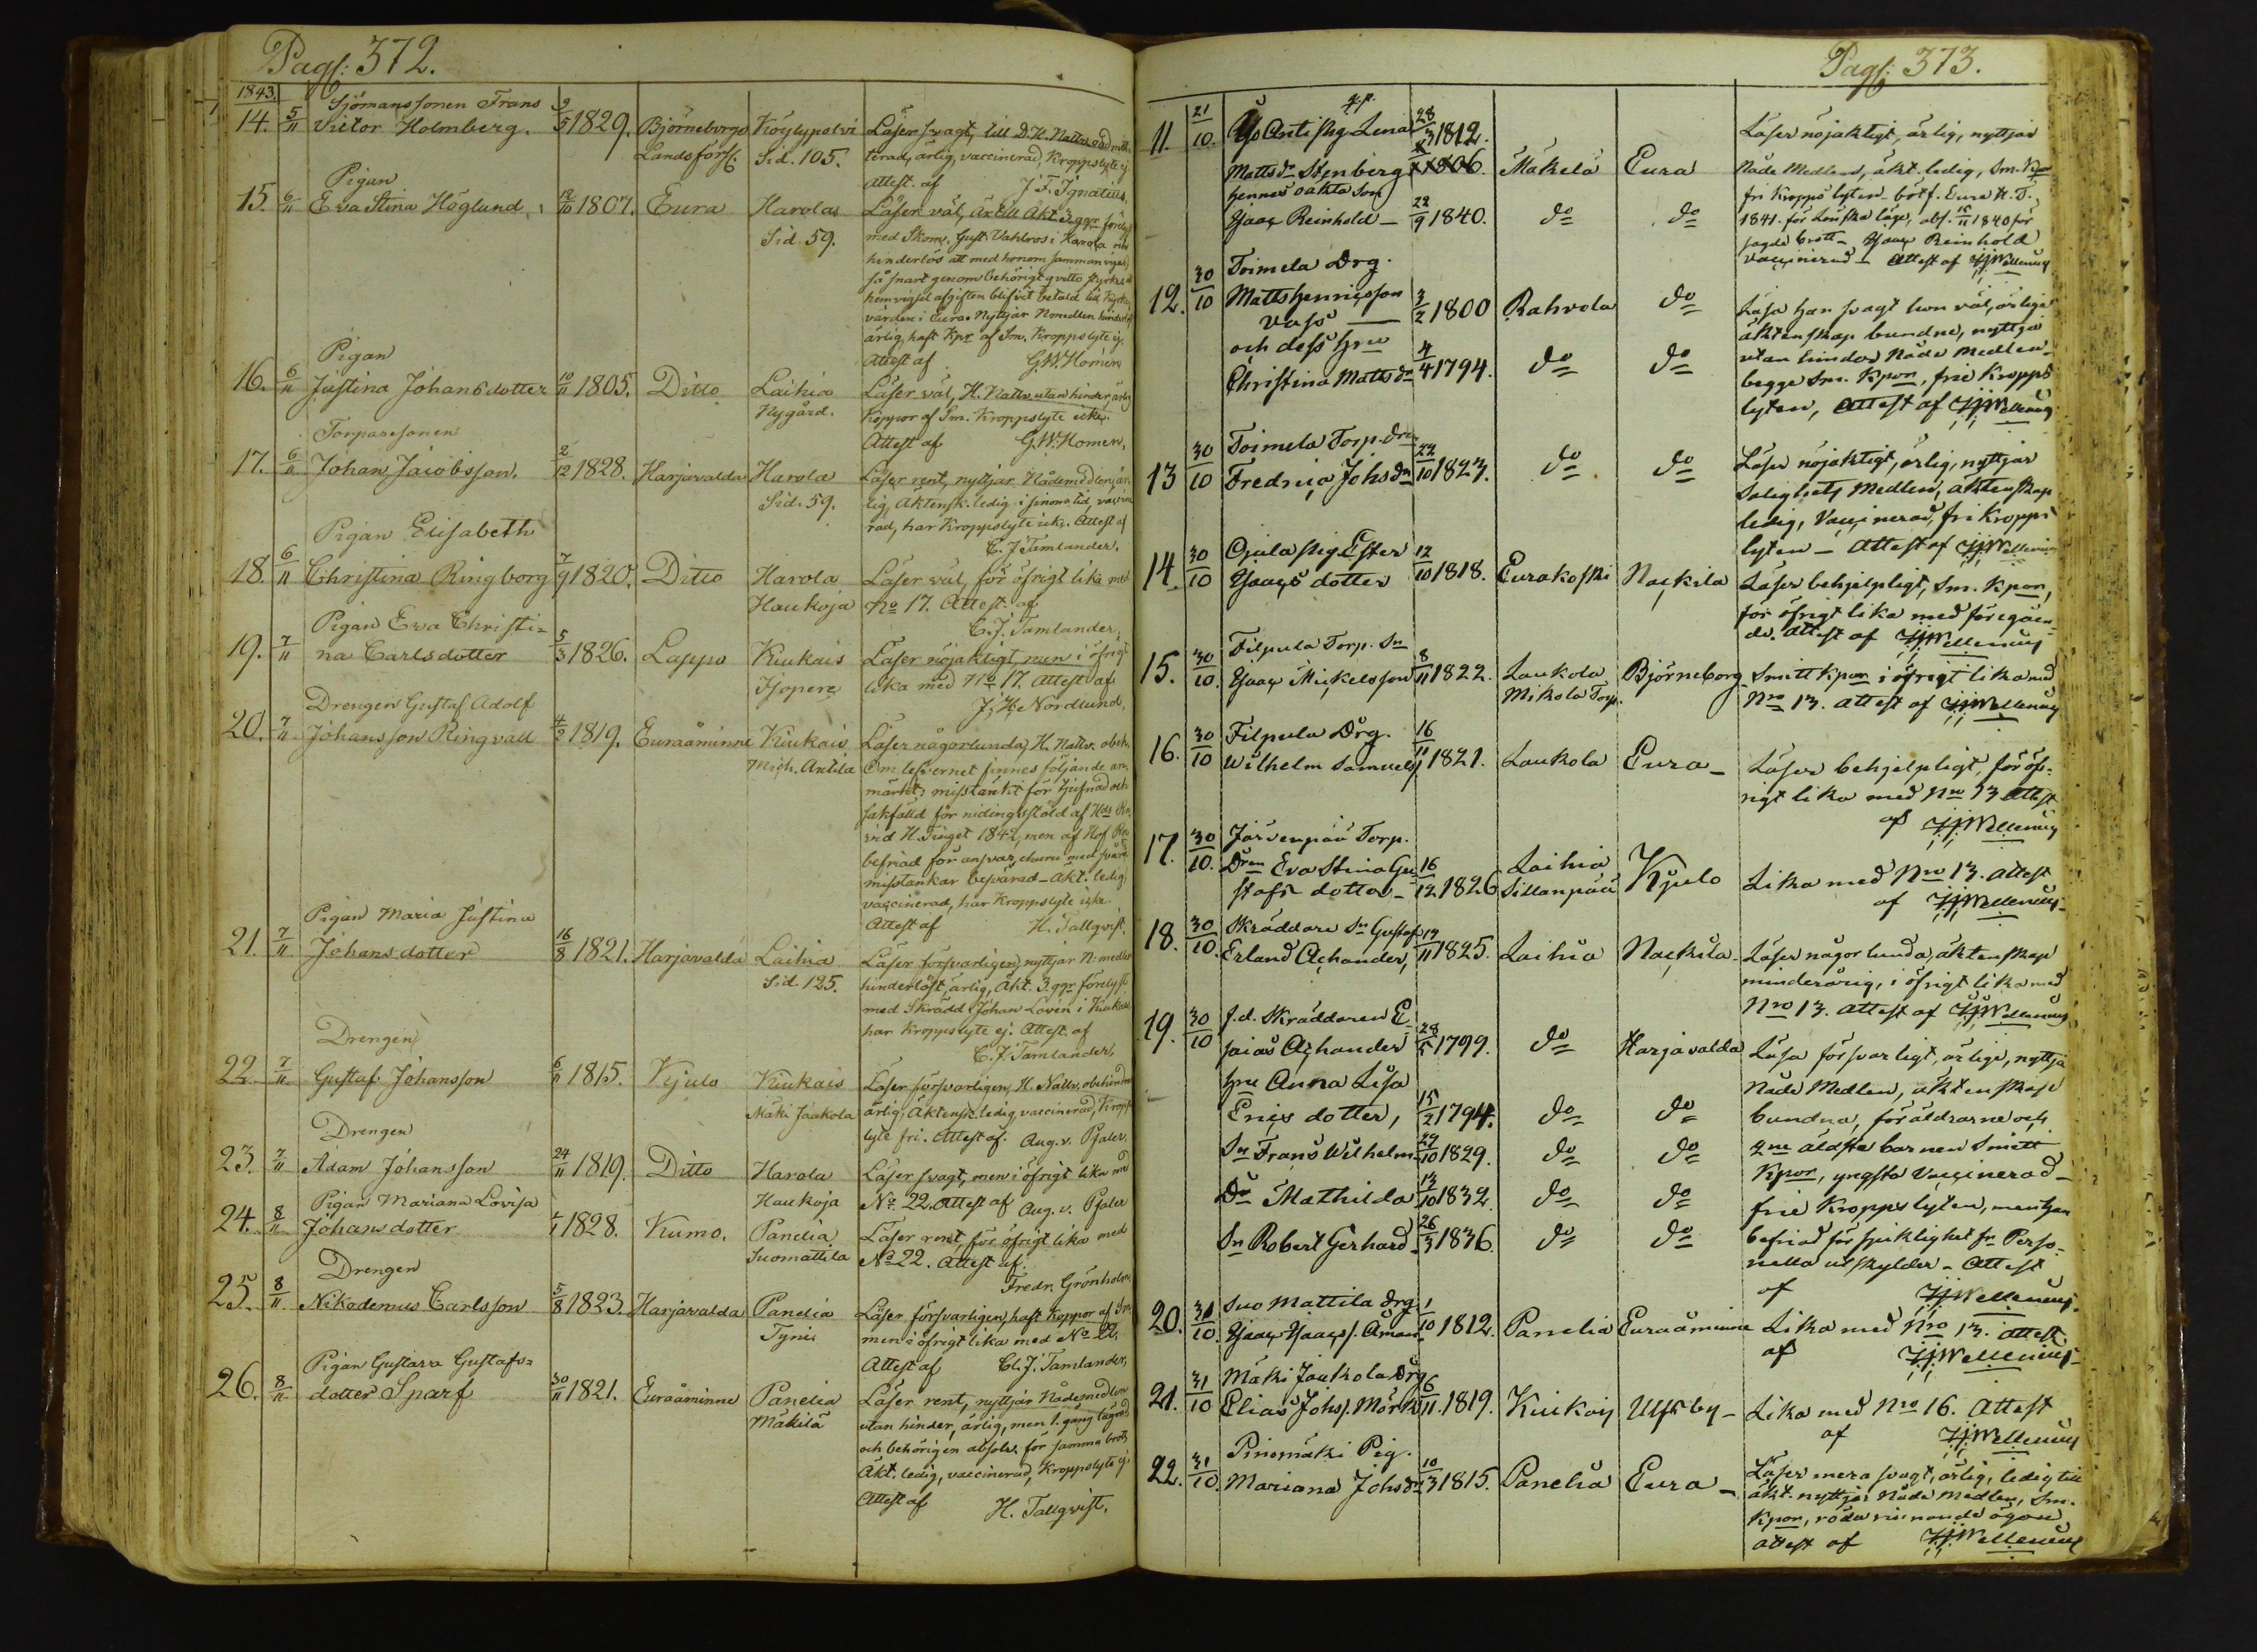 Pag: 372.
1843.
14. 5/11 Sjömanssonen Frans
Victor Holmberg. 9/5 1829. Björneborgs Köylypolvi Läser svagt, till D. H. Nattv.
Landsförs: Sid. 105. terad, ärlig, vaccinerad, Kroppslyte ej
Attest. af J. F. Ignatius.
Pigan
15. 6/11 Eva Stina Höglund, 12/10 1807. Eura Harola Läser väl, Är till Äkt. 3 ggr förelyst
Sid. 59. med Skom. Gust. Vahlroos i Harola och
hinderlös att med honom sammanvigas,
så snart genom behörigt qvitto styrkes at
hemvigsel afgiften blifvit betald till Kyrko
värden i Eura. Nyttjar Nmedlen hinderl.
ärlig, haft Kpr af Sm, Kroppslyte ej.
Attest af G. W. Homén
Pigan
16. 6/11 Justina Johansdotter 10/11 1805. Ditto Laihia Läser väl, H. Nattv. utan hinder, ärlig
Nygård. Koppor af Sm. Kroppslyte icke.
Attest af G. W. Homén,
Torparesonen
17. 6/11 Johan Jacobsson. 2/12 1828. Harjavalda Harola Läser rent, nyttjar Nådemedlen, är-
Sid. 59. lig, Äktensk. ledig i sinom tid, vaccine
rad, har Kroppslyte icke. Attest af
C. J. Tamlander,
Pigan Elisabeth
18. 6/11 Christina Ringborg 7/9 1820. Ditto Harola Läser väl, för öfrigt lika med
Haukoja No 17. Attest. af
C. J. Tamlander,
Pigan Eva Christi=
19. 7/11 na Carlsdotter 5/3 1826. Lappo Kiukais Läser nöjaktigt, men i öfrigt
lika med No 17. Attest af
J. H. Nordlund,
Drengen Gustaf Adolf
20. 7/11 Johansson Ringvall 4/2 1819. Euraåminne Kiukais Läser någorlunda, H. Nattv. obeh.
Mich. Antila Om lefvernet finnes följande an-
märkt: misstänkt för tjufnad och
sakfälld för nidingsstöld af Hds Rn
vid H. Tinget 1842, men af Hof Rn
befriad för ansvar, ehuru med svåra
misstankar besvärad - Äkt. ledig
vaccinerad, har Kroppslyte icke
Attest af H. Tallqvist.
Pigan Maria Justina
21. 7/11 Johansdotter 16/8 1821. Harjavalda Laihia Läser försvarligen, nyttjar N: medlen
Sid. 125. hinderlöst, ärlig, Äkt. 3 ggr förelyst
med Skrädd. Johan Lovén i Kiukais
har Kroppslyte ej. Attest. af
C. J. Tamlander,
Drengen
22. 7/11 Gustaf Johansson 6/11 1815. Kjulo Kiukais Läser försvarligen, H. Nattv. obehindradt
Mäki Jaakola ärlig, Äktensk. ledig, vaccinerad, Kropps
lyte fri. Attest af. Aug. v. Pfaler.
Drengen
23. 7/11 Adam Johansson 24/11 1819. Ditto Harola Läser svagt, men i öfrigt lika med
Haukoja No. 22. Attest af Aug. v. Pfaler
Pigan Mariana Lovisa
24. 8/11 Johansdotter 1828. Kumo. Panelia Läser rent, för öfrigt lika med
Suomattila No 22. Attest af.
Fredr. Grönholm
Drengen
25. 8/11 Nikodemus Carlsson 5/8 1823. Harjavalda Panelia Läser försvarligen, haft Koppor af Sm
Tynii men i öfrigt lika med No 22.
Attest af C. J. Tamlander,
Pigan Gustava Gustafs=
26. 8/11 dotter Sparf 30/11 1821. Euraåminne Panelia Läser rent, nyttjar Nådemedlen
Mäkilä utan hinder, ärlig, men 1. gång lägrad
och behörigen absolv. för samma brott,
Äkt. ledig, vaccinerad, Kroppslyte ej
Attest af H. Tallqvist.
Pag: 373.
11. 21/10. Antti Pig. Lena 28/3 1812. Läser nöjaktigt, ärlig, nyttjar
Matts dr Stenberg Mäkelä Eura Nåde Medlen, äkt. ledig, Sm. Kpor
hennes oäkta Son fri Kropps lyten - bötf. Eura H. T.
Isaac Reinhold - 22/9 1840. do do 1841. för Lönska läge, abs. 15/11 1840 för
sagde brott - Isaac Reinhold
vaccinerad - Attest af
Toimela Drg.
12. 30/10 Matts Henricsson 3/2 1800 Rahvola do Läsa han svagt hon väl, ärlige
Vass äktenskap bundne, nyttja
och dess Hru 4/4 utan hinder Nåde Medlen
Christina Matts dr 1794. do do begge Sm. Kpor, frie Kropps
lyten, Attest af
13 30/10 Toimela Torp. dr
Fredrica Johs dr 22/10 1823. do do Läser nöjaktigt, ärlig, nyttjar
Salighets Medlen, äktenskap
ledig, Vaccinerad, fri Kropps
lyten - Attest af
14. 30/10 Ojala Pig. Ester 12/10 1818. Eurakoski Nackila Läser behjelpligt, Sm. Kpor,
Isaacs dotter för öfrigt lika med föregåen-
de. Attest af
Filpula Torp. Sn
15. 30/10. Isaac Mickelsson 8/11 1822. Laukola Björneborg Smitt Kpor i öfrigt lika med
Mikola Torp. Nro 13. Attest af
16. 30/10 Filpula Drg.
Wilhelm Samuels 16/11 1821. Laukola Eura - Läser behjelpligt, för öf-
rigt lika med Nro 13 Attest
af
17. 30/10. Järvenpää Torp.
Dren Eva Stina Gu 16/12 1826 Laihia Kjulo Lika med Nro 13. Attest
stafs dotter - Sillanpää af
18. 30/10. Skräddare Sn Gustaf
Erland Achander, 19/11 1825. Laihia Nackila - Läser någorlunda, äktenskap
minderårig, i öfrigt lika med
Nro 13. Attest af
19. 30/10 f.d. Skräddaren E-
saias Achander 28/5 1799. do Harjavalda Läsa försvarligt, ärlige, nyttja
Hru Anna Lisa Nåde Medlen, äktenskap
Erics dotter, 15/2 1794. do do bundna, föräldrarne och
Sn Frans Wilhelm 22/10 1829. do do 2ne äldsta barnen Smitt
Kpor, yngsta Vaccinerad -
Dr Mathilda 13/10 1832. do do frie Kroppslyten, men han
Sn Robert Gerhard 26/3 1836. do do befriad för sjuklighet fr. Perso-
nella utskylder - Attest
af
20. 31/10. Suo Mattila drg.
Isaac Isaacs. Åman 1/10 1812. Panelia Euraåminne Lika med Nro 13. Attest
af
21. 31/10 Mäki Jaakola Drg
Elias Johs. Mörk 6/11 1819. Kiukais Ulfsby - Lika med Nro 16. Attest
af
Pinomäki Pig.
22. 31/10 Mariana Johs dr 10/3 1815. Panelia Eura - Läser mera svagt, ärlig, ledig till
äkt. nyttjar Nåde Medlen, Sm.
Kpor, röda rinnande ögon
Attest af